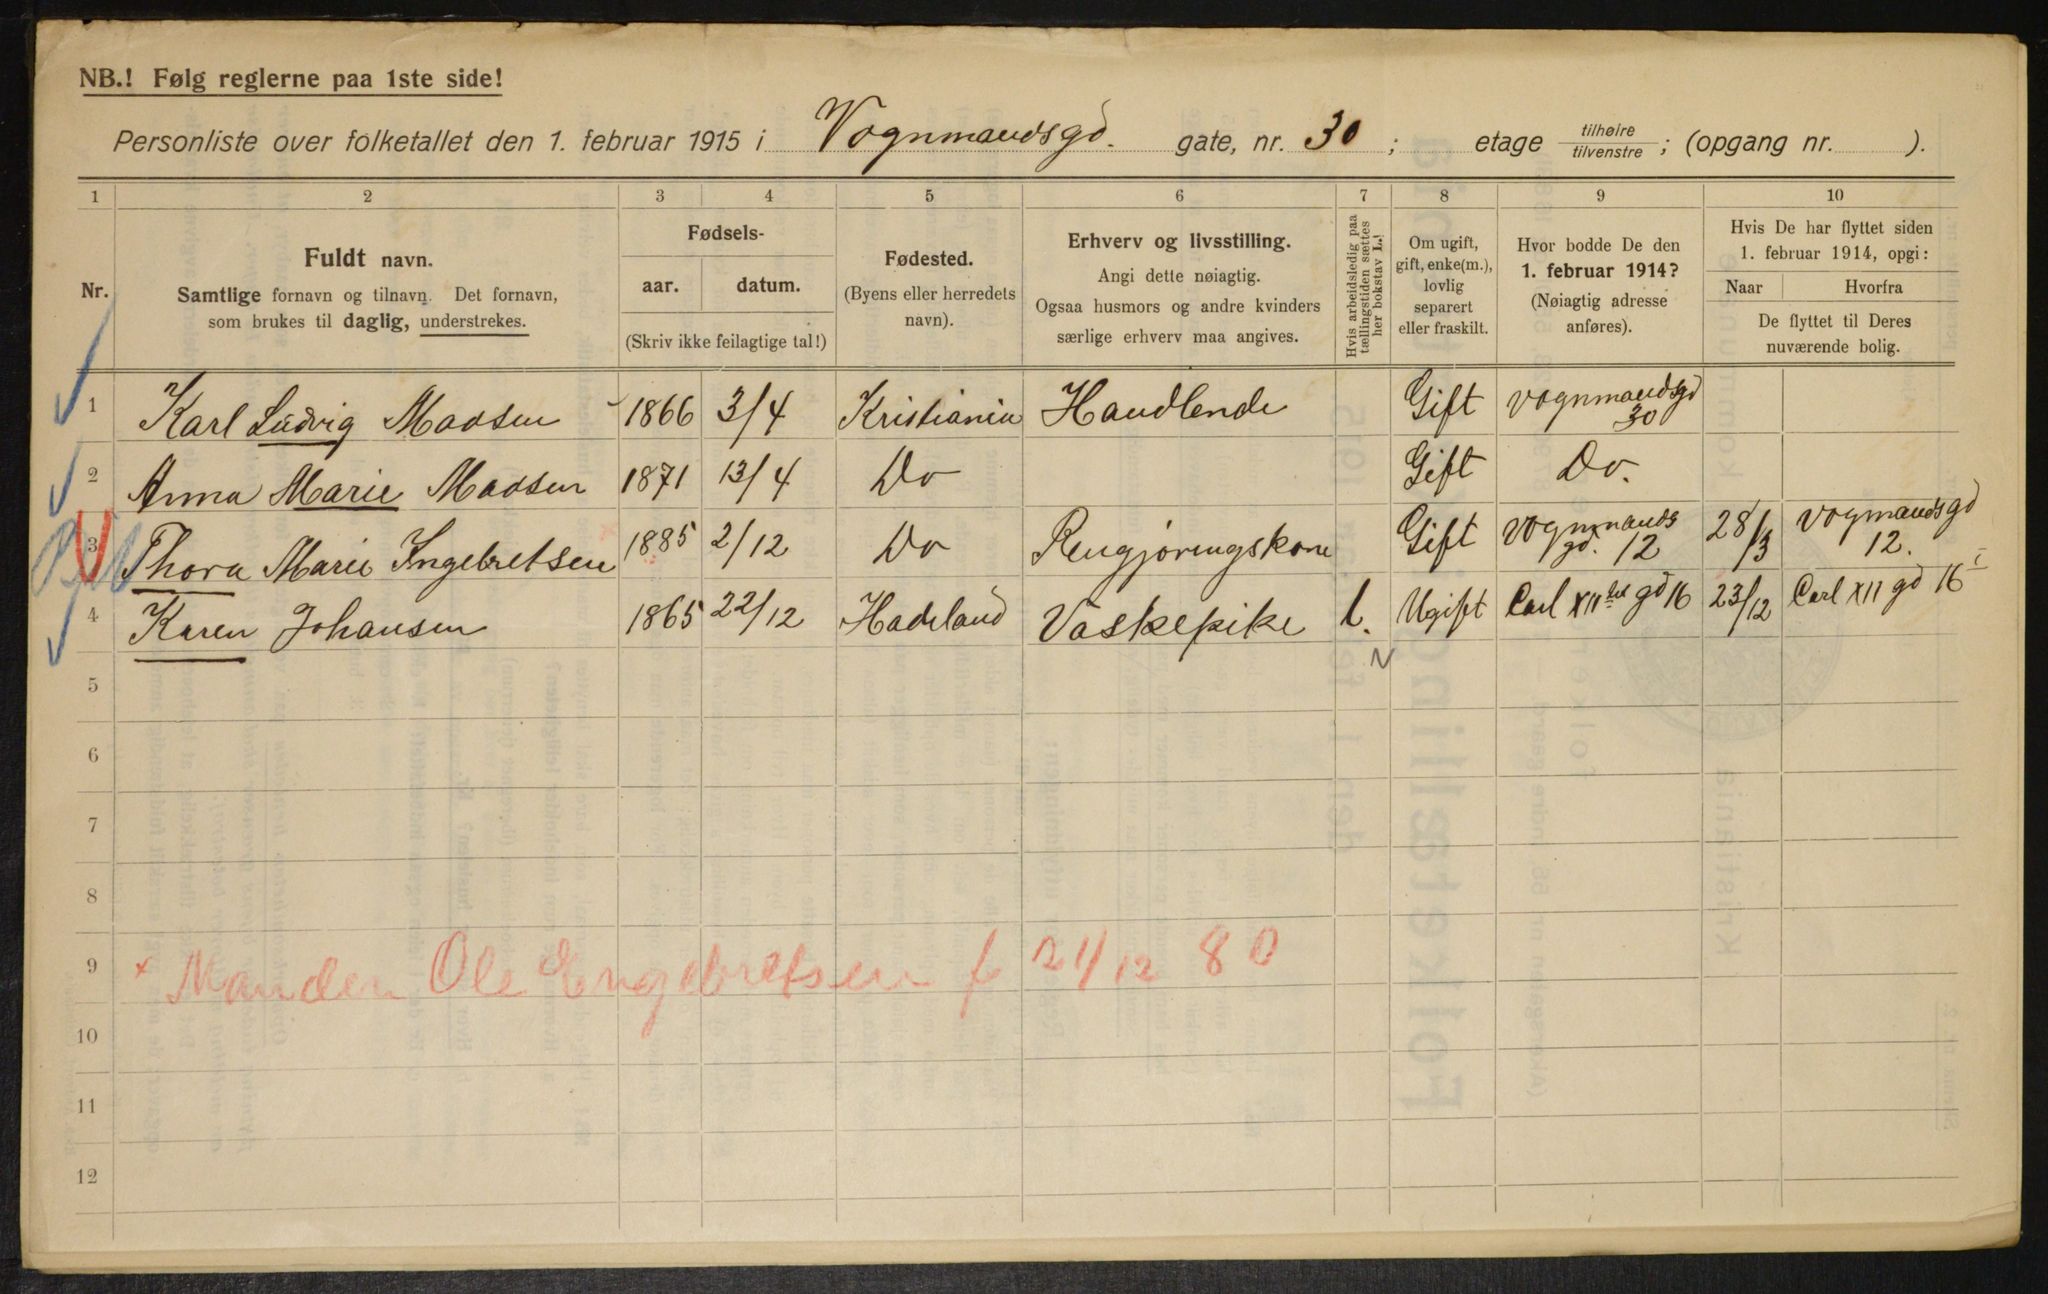 NB.! Følg reglerne paa 1ste side!
Personliste over folketallet den 1. februar 1915 i Vognmandsgd. gate, nr. 30 ; etage tilhøire / tilvenstre ; (opgang nr. ).
1 2 3 4 5 6 7 8 9 10
Nr.
Fuldt navn.
Samtlige fornavn og tilnavn. Det fornavn,
som brukes til daglig, understrekes.
Fødsels-
aar. datum.
(Skriv ikke feilagtige tal!)
Fødested.
(Byens eller herredets
navn).
Erhverv og livsstilling.
Angi dette nøiagtig.
Ogsaa husmors og andre kvinders
særlige erhverv maa angives.
Hvis arbeidsledig paa
tællingstiden sættes
her bokstav L.!
Om ugift,
gift, enke(m.),
lovlig
separert
eller fraskilt.
Hvor bodde De den
1. februar 1914?
(Nøiagtig adresse
anføres).
Hvis De har flyttet siden
1. februar 1914, opgi:
Naar Hvorfra
De flyttet til Deres
nuværende bolig.
1 Karl Ludvig Madsen 1866 3/4 Kristiania Handlende Gift Vognmandsgd 30
2 Anna Marie Madsen 1871 13/4 Do Gift Do.
3 Thora Marie Ingebretsen 1885 2/12 Do Rengjøringskone Gift Vognmandsgd. 12 28/3 Vogmandsgd 12.
4 Karen Johansen 1865 22/12 Hadeland Vaskepike l. Ugift Carl XII tes gd 16 23/12 Carl XII gd 16 I
N
5
6
7
8
9 × Manden Ole Engebretsen f 21/12 80
10
11
12